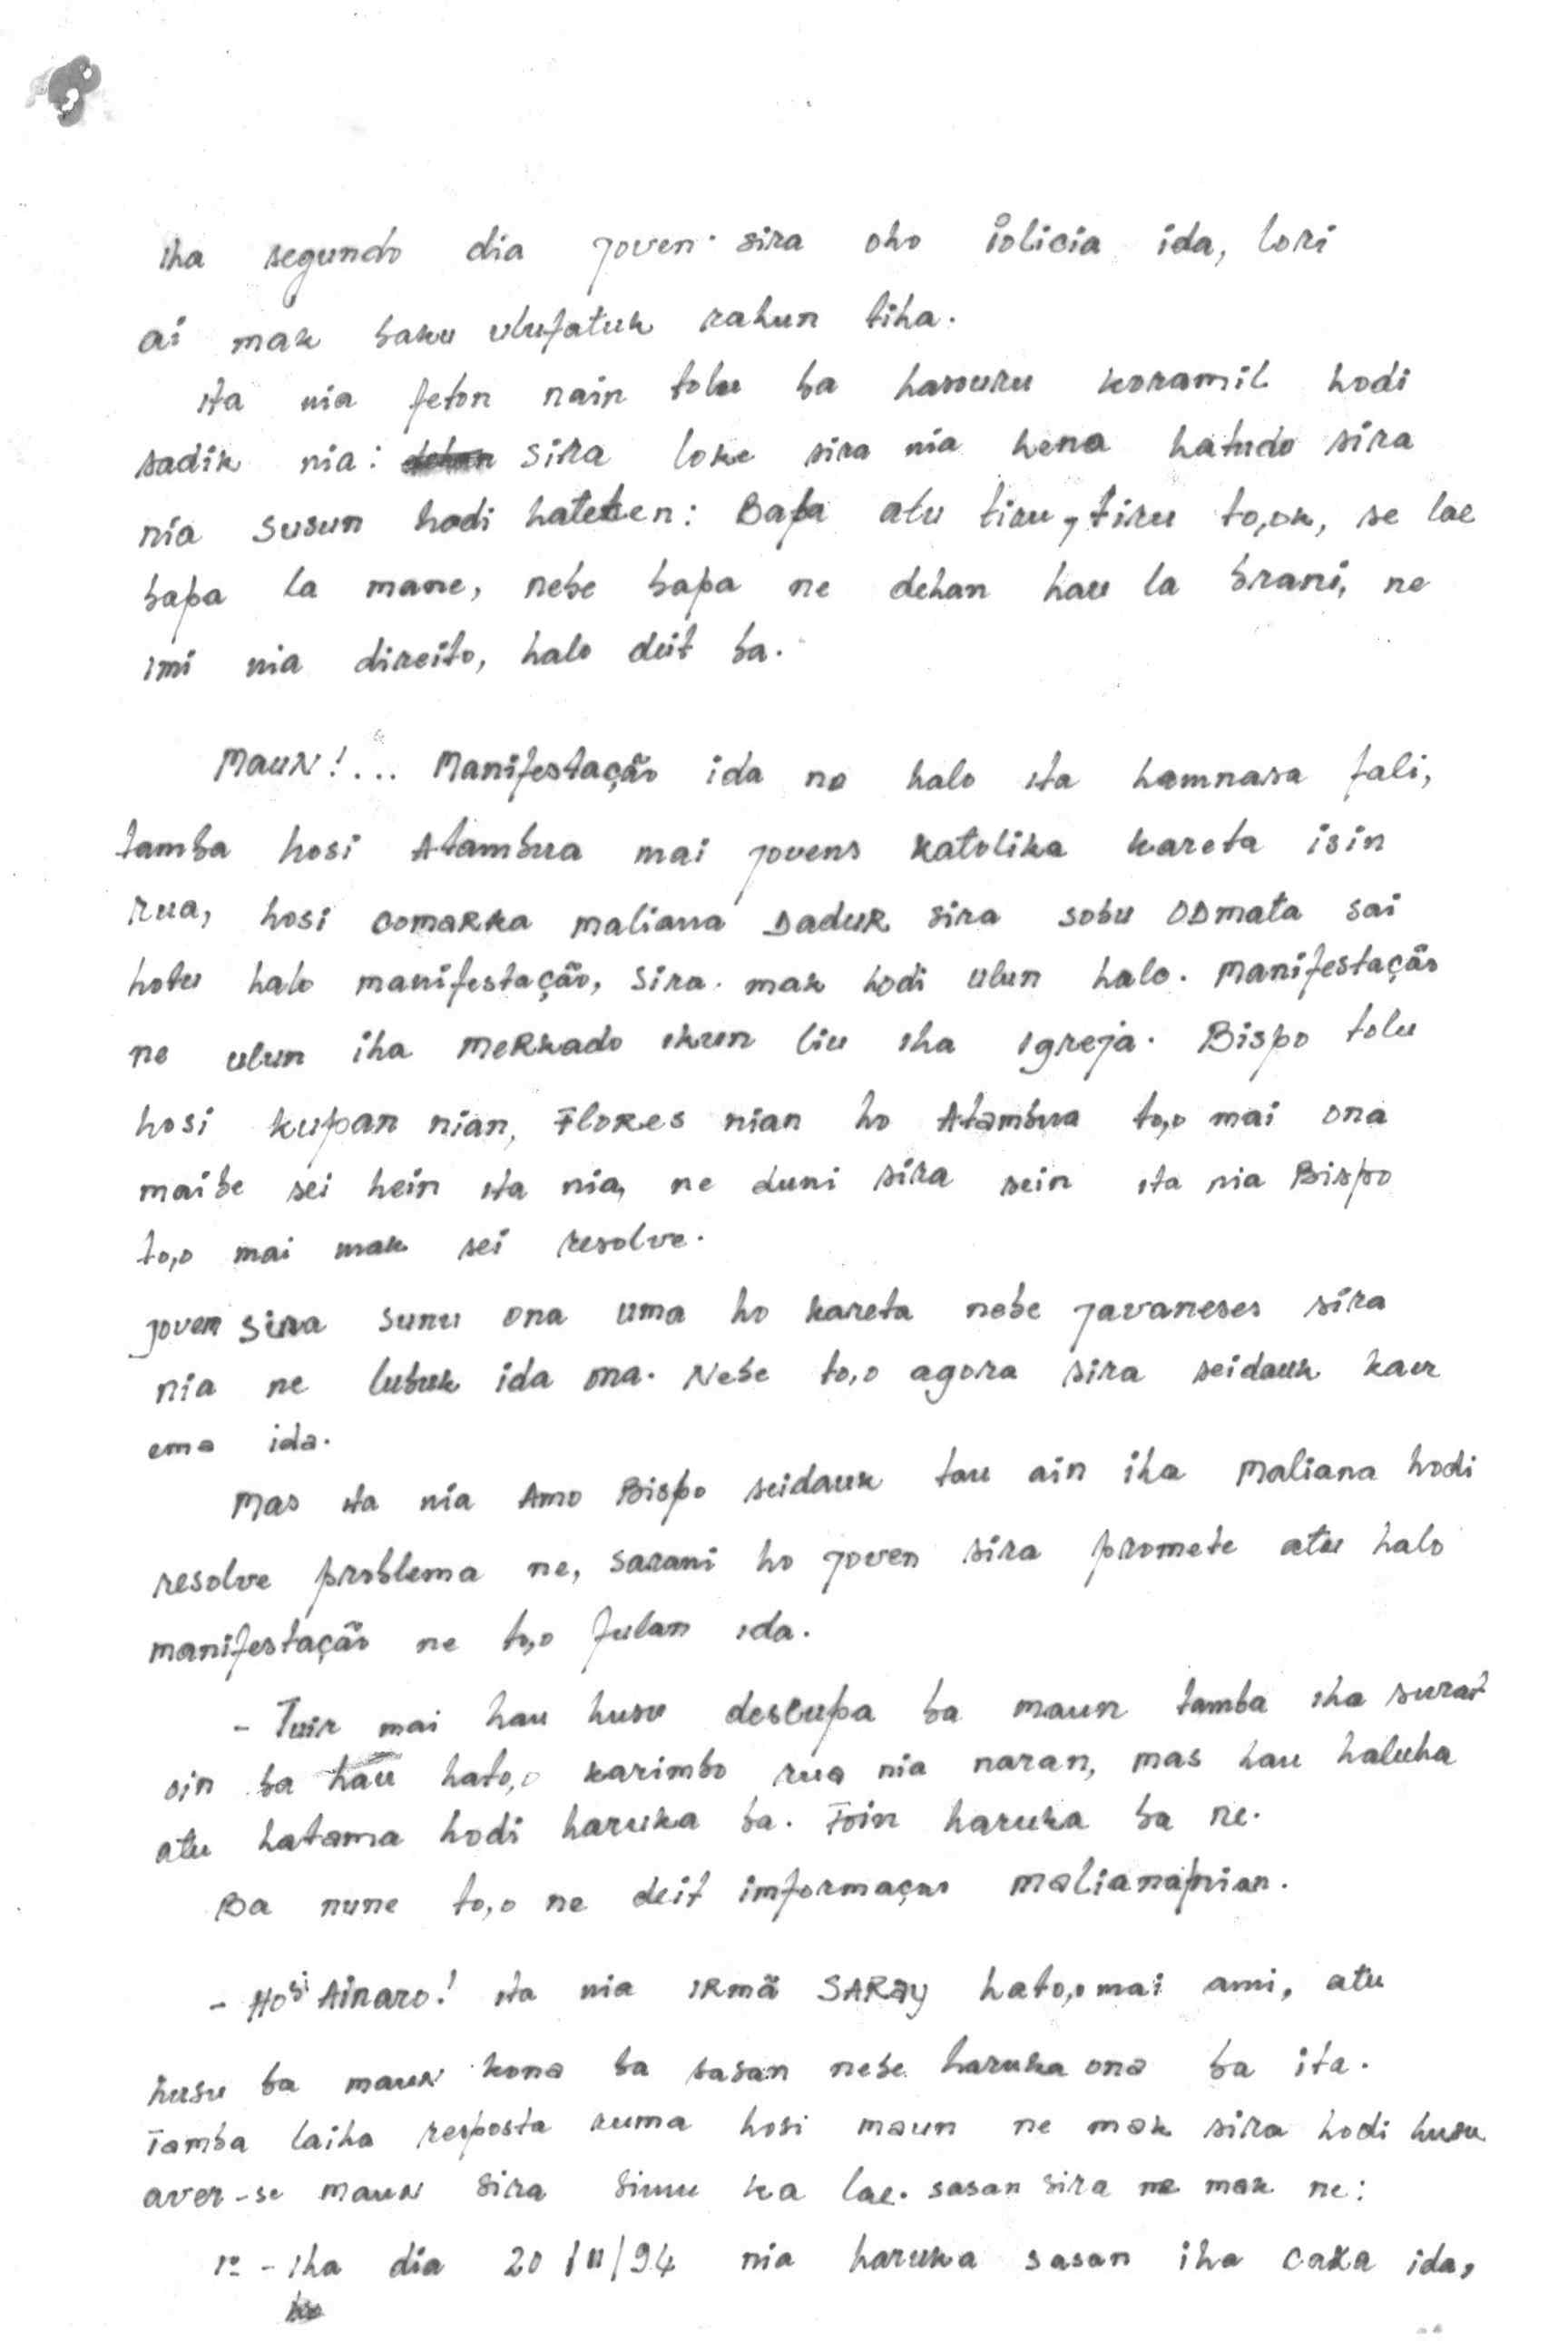 iha segundo dia joven sira oho ìolicia ida, lori
ai mak baku ulufatuk rahun tiha.
ita nia feton nain tolu ba hasouru koramil hodi
sadik nia: sira loke sira nia hena hatudo sira
nia susun hodi hateten: Bapa atu tiru, tiru to,ok, se lae
bapa la mane, nebe bapa ne dehan hau la brani, ne
imi nia direito, halo deit ba.
MAUN!... Manifestação ida ne halo ita hamnasa fali,
tamba hosi Atambua mai jovens katolika kareta isin
rua, hosi comarka maliana Dadur sira sobu odmata sai
hotu halo manifestação, sira mak hodi ulun halo. Manifestação
ne ulun iha merkado ikun liu iha igreja. Bispo tolu
hosi kupan nian, Flores nian ho Atambua to,o mai ona
maibe sei hein ita nia, ne duni sira sein ita nia Bispo
to,o mai mak sei resolve.
joven sira sunu ona uma ho kareta nebe javaneses sira
nia ne lubuk ida ona. Nebe to,o agora sira seidauk kaer
ema ida.
Mas ita nia Amo Bispo seidauk tau ain iha Maliana hodi
resolve problema ne, sarani ho joven sira promete atu halo
manifestação ne to,o fulan ida.
- Tuir mai hau husu desculpa ba maun tamba iha surat
oin ba hau hato,o karimbo rua nia naran, mas hau haluha
atu hatama hodi haruka ba. Foin haruka ba ne.
Ba nune to,o ne deit imformaçao maliana nian.
- Hosi Ainaro! ita nia irmã SARAY hato,o mai ami, atu
husu ba maun kona ba sasan nebe haruka ona ba ita.
Tamba laiha resposta ruma hosi maun ne mak sira hodi husu
aver-se maun sira simu ka lae. sasan sira ne mak ne:
1º - iha dia 20/11/94 nia haruka sasan iha caxa ida,